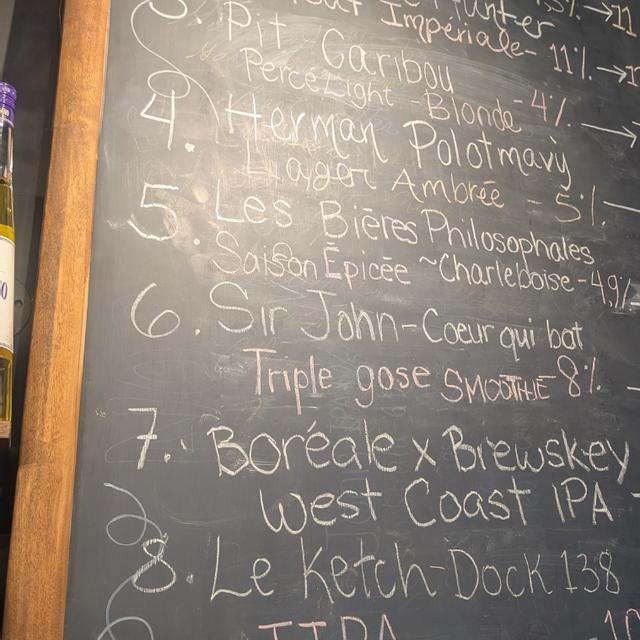 Hunter
Impériale - 11% → 
3. Pit Caribou
Perce Light - Blonde - 4% →
4. Herman Polotmavý
Lager Ambrée - 5%
5. Les Bières Philosophales
Saison Épicée ~ Charleboise - 4,9%
6. Sir John - Coeur qui bat
Triple gose SMOOTHIE 8%
7. Boréale x Brewskey
West Coast IPA
8. Le Ketch - Dock 138
IIPA